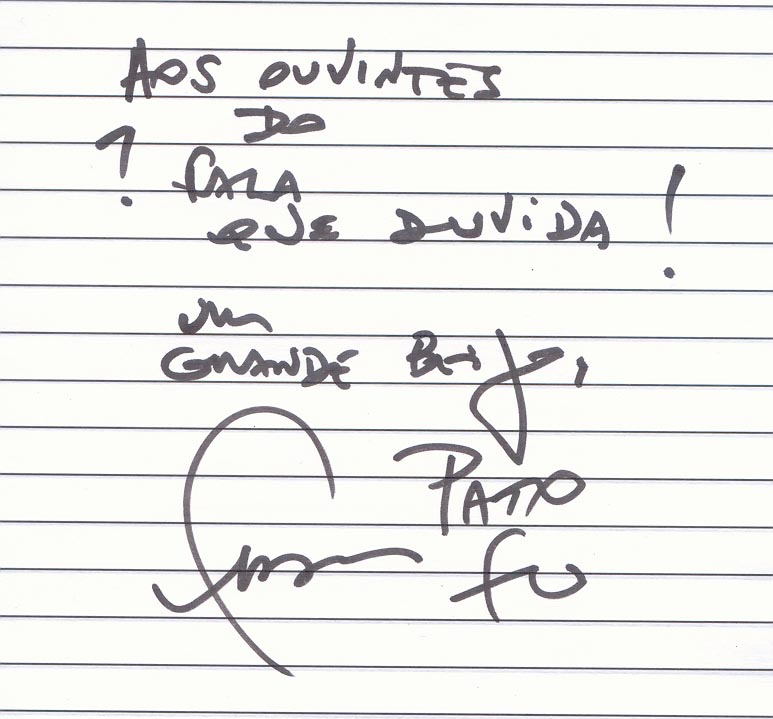 AOS OUVINTES
DO
? FALA
QUE DUVIDA !
UM
GRANDE BEIJO,
PATO
FU